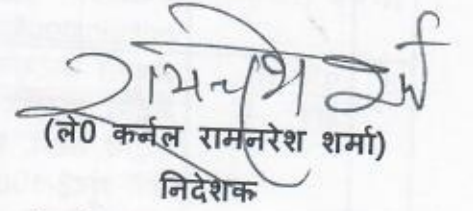 (ले0 कर्नल रामनरेश शर्मा)
निदेशक